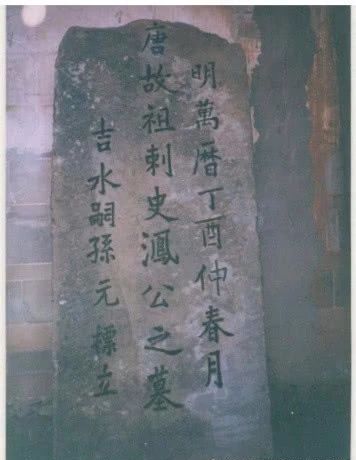 明萬暦丁酉仲春月
唐故祖刺史公之墓
吉水嗣孫元標立